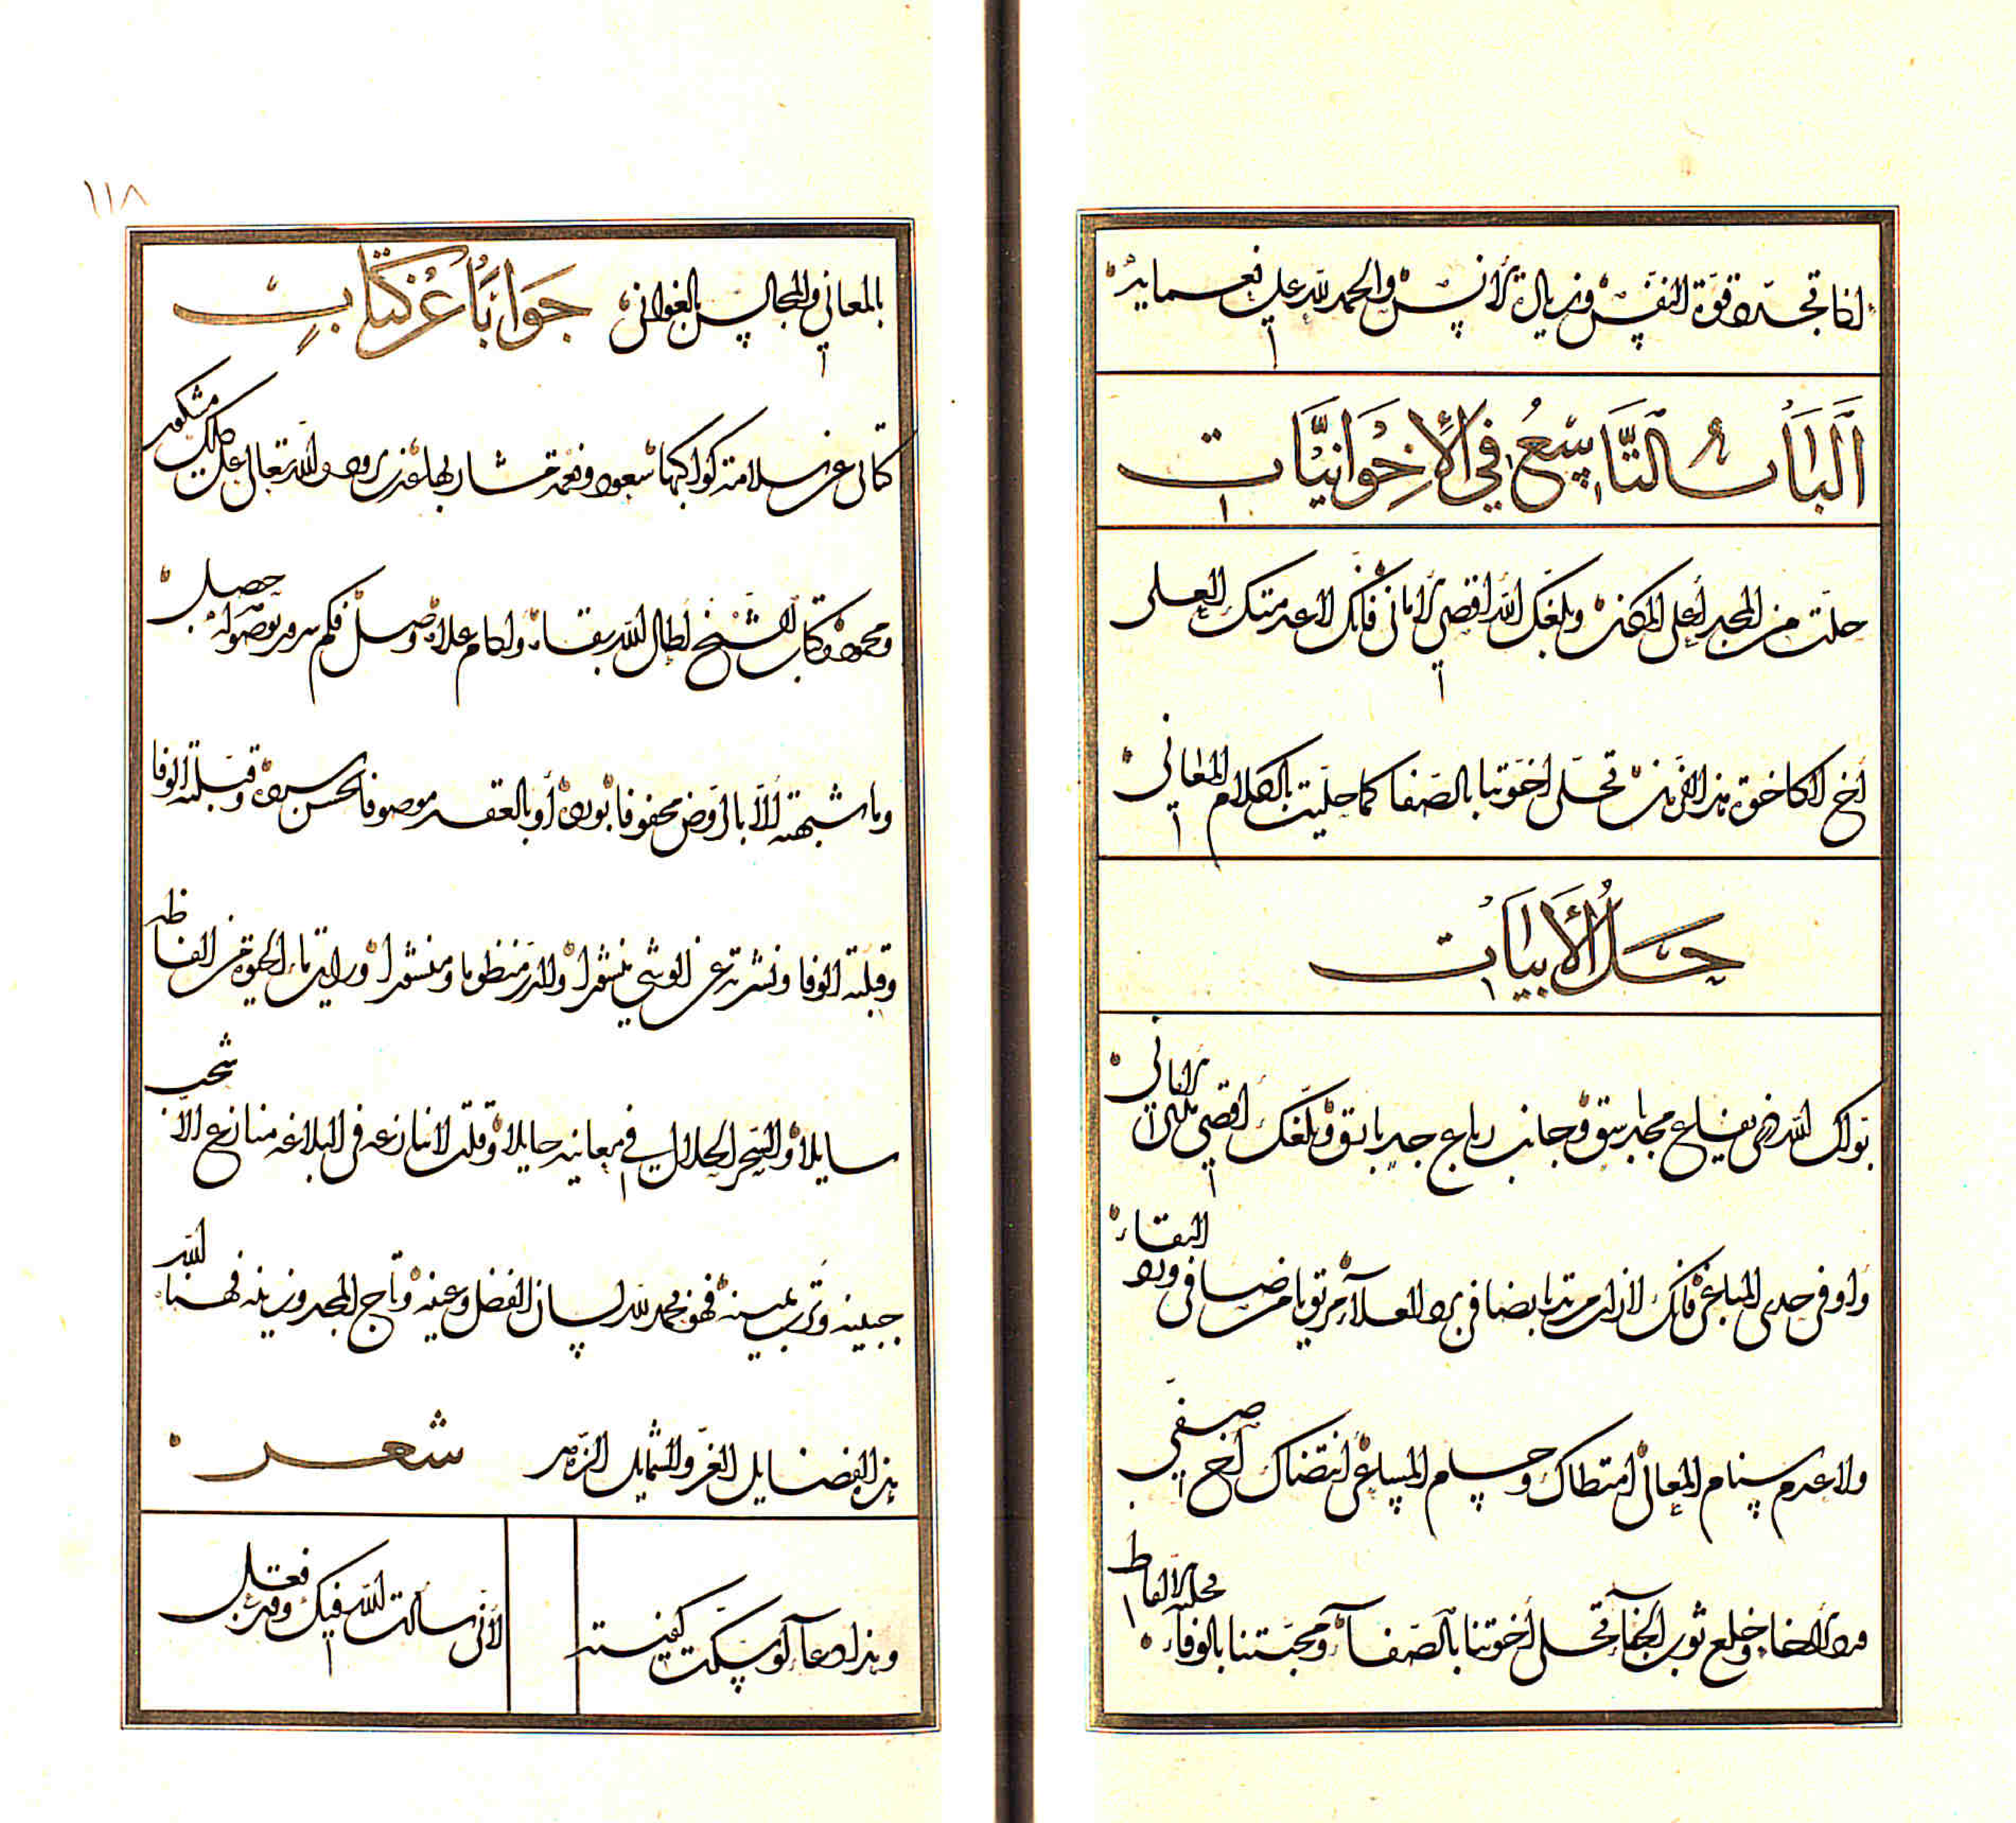 لما تجدده قوة النفس وزيال الأنس والحمد لله على نعمايه
اَلْبَابُ التَّاسِعُ فِي الْإِخْوَانِيَّات
حللت من المجد أعلى المكان وبلغك الله أقصى الأماني فانك لا عدمتك العلى
أخ لا كاخوة هذا الزمان تحلى اخوتنا بالصفا كما حليت بالكلام المعاني
حَلُّ الْأَبْيَات
بوأك الله من يفاع مجد باسق وجانب رباع جد باتق وبلغك أقصى تلك الأماني
وأوفى حدى المباغي فانك لا زلت مرتديا بضافي برد العلا مرتويا من صافي ورد البقاء
ولا عدم سنام المعالي امتطاك وحسام المساعي انتضاك أخ صفي
من الاخاء وخلع ثوب الجفاء تحلى أخوتنا بالصفاء ومحبتنا بالوفاء تحلية الألفاظ
١١٨
بالمعاني والمجالس بالغواني جَوَابًا عَنْ كِتَابٍ
كتابي عن سلامة كواكبها سعود ونعمة مشاربها عذب برود والله تعالى على ذلك مشكور
ومحمود وكتاب الشيخ أطال الله بقاء وأدام علاه وصل فكم سرور بوصوله حصل
وما شبهته الا بالروض محفوفا بنوره أو بالعقد موصوفا بحسن سيره وقبلته الوفا
وقبلته الوفا ونشرته عن الوشي منشرا والدر منظوما ومنثورا ورأيت ماء الحيوة من الفاظه
سايلا والسحر الحلال في معانيه جايلا وقلت لا نازعه في البلاغة منازع الا شحب
جبينه وتربت يمينه فهو بحمد لله لسان الفضل وعينه وتاج المجد وزينه فهناه الله
هذه الفضايل الغر والشمايل الزهر شعر
وهذا دعاء لو سكت كفيته لأني سألت الله فيك وقد فعل